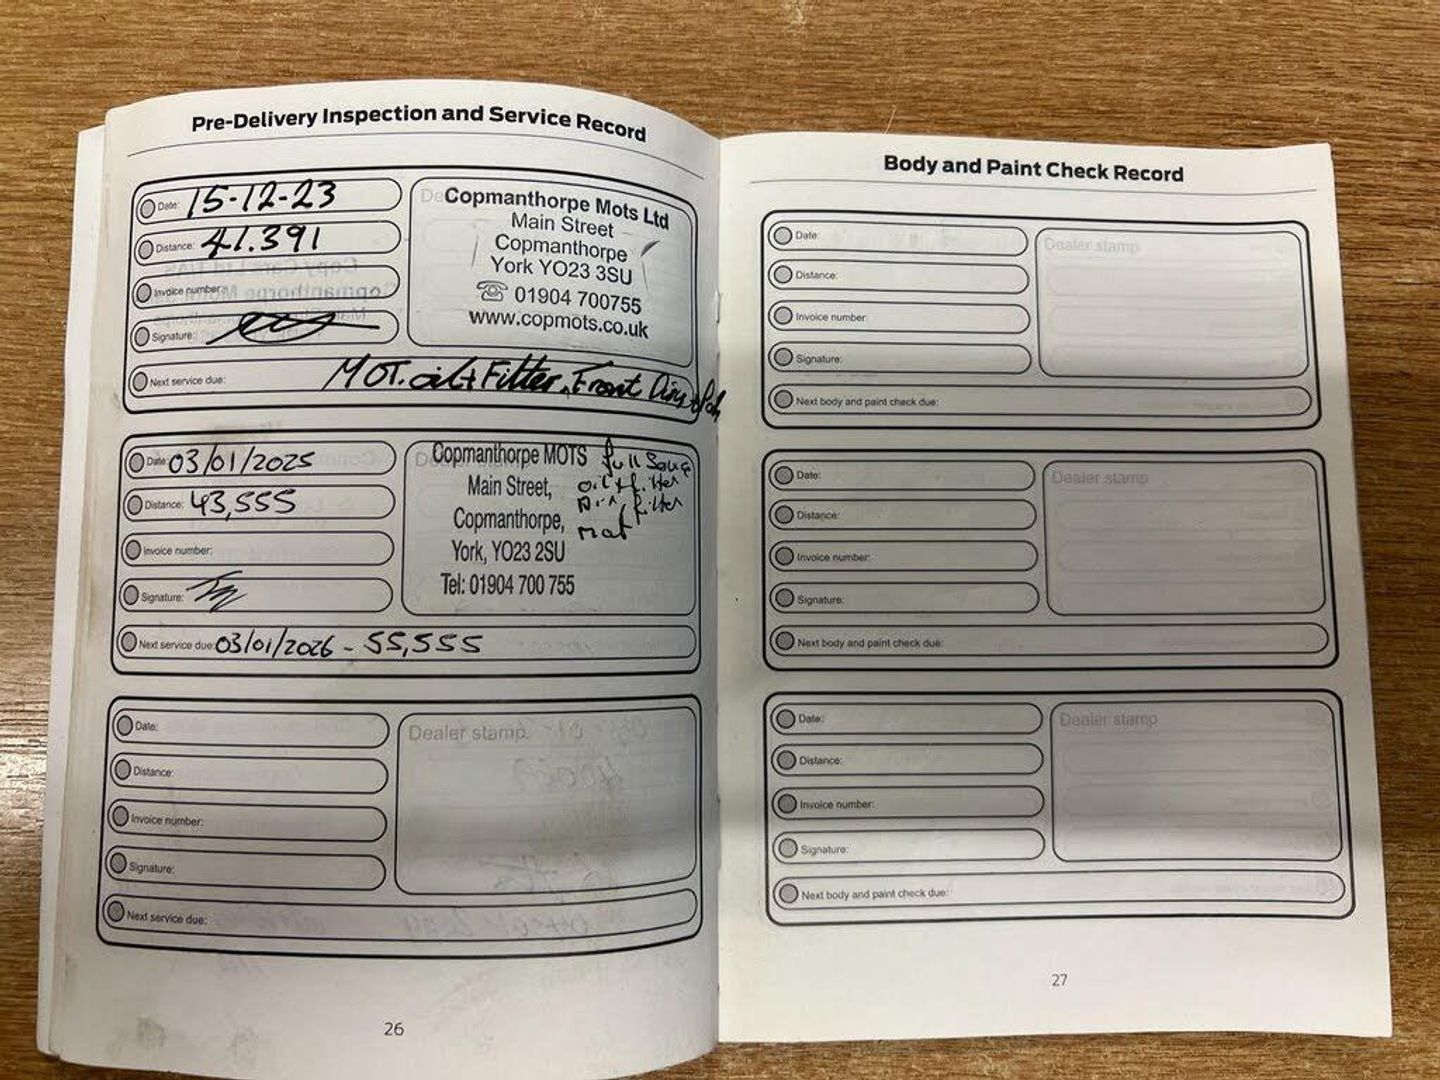 Pre-Delivery Inspection and Service Record
Date: 15-12-23
Distance: 41.391
Invoice number:
Signature:
Next service due: MOT. oil + Filter, Front Discs + Pads
Copmanthorpe Mots Ltd
Main Street
Copmanthorpe
York YO23 3SU
☏ 01904 700755
www.copmots.co.uk
Date: 03/01/2025
Distance: 43,555
Invoice number:
Signature:
Next service due: 03/01/2026 - 55,555
Copmanthorpe MOTS
Main Street,
Copmanthorpe,
York, YO23 2SU
Tel: 01904 700 755
full
oil + filter
Air filter
mot
Date:
Distance:
Invoice number:
Signature:
Next service due:
Dealer stamp
26
Body and Paint Check Record
Date:
Distance:
Invoice number:
Signature:
Next body and paint check due:
Dealer stamp
Date:
Distance:
Invoice number:
Signature:
Next body and paint check due:
Dealer stamp
Date:
Distance:
Invoice number:
Signature:
Next body and paint check due:
Dealer stamp
27